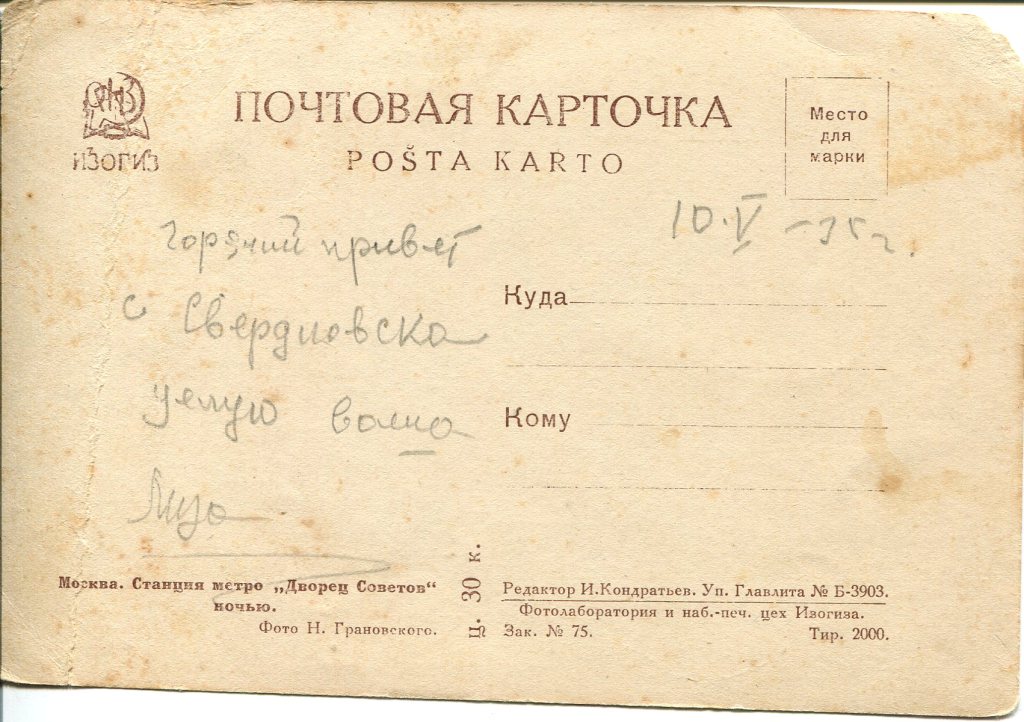 ИЗОГИЗ
ПОЧТОВАЯ КАРТОЧКА
POŠTA KARTO
Место
для
марки
10.V – 35 г.
Горячий привет
с Свердловска
целую ваша
Лиза
Куда
Кому
Москва. Станция метро „Дворец Советов“
ночью.
Фото Н. Грановского.
Ц. 30 к.
Редактор И.Кондратьев. Уп. Главлита № Б-3903.
Фотолаборатория и наб.-печ. цех Изогиза.
Зак. № 75. Тир. 2000.